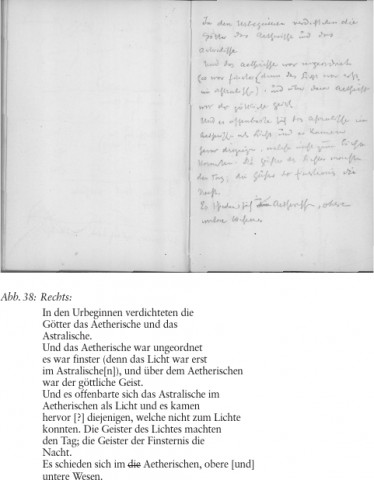 In den Urbeginnen verdichteten die
Götter das Aetherische und das
Astralische.
Und das Aetherische war ungeordnet
es war finster (denn das Licht war erst
im Astralische), und über dem Aetherischen
war der göttliche Geist.
Und es offenbarte sich das Astralische im
Aetherischen als Licht und es kamen
hervor diejenigen, welche nicht zum Lichte
konnten. Die Geister des Lichtes machten
den Tag; die Geister der Finsternis die
Nacht.
Es schieden sich im die Aetherischen, obere
untere Wesen.
Abb. 38: Rechts:
In den Urbeginnen verdichteten die
Götter das Aetherische und das
Astralische.
Und das Aetherische war ungeordnet
es war finster (denn das Licht war erst
im Astralische[n]), und über dem Aetherischen
war der göttliche Geist.
Und es offenbarte sich das Astralische im
Aetherischen als Licht und es kamen
hervor [?] diejenigen, welche nicht zum Lichte
konnten. Die Geister des Lichtes machten
den Tag; die Geister der Finsternis die
Nacht.
Es schieden sich im die Aetherischen, obere [und]
untere Wesen.